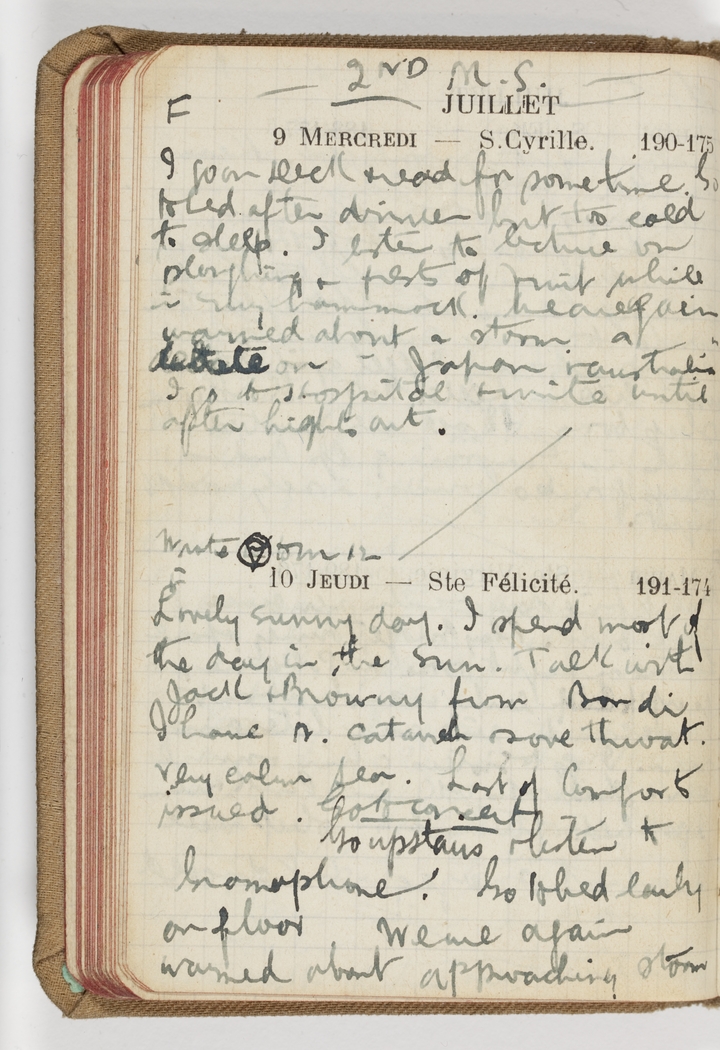 2ND M.S.
F JUILLET
9 MERCREDI — S. Cyrille. 190-175
I go on deck & read for some time. Go
to bed after dinner but too cold
to sleep. I listen to lecture on
& pests of fruit while
in my hammock. We are again
warned about a storm. a
debate on Japan & Australia
I go to Hospital & write until
after lights out.
Wrote
F 10 JEUDI — Ste Félicité. 191-174
Lovely sunny day. I spend most of
the day in the sun. Talk with
Jack & Browny from Bondi
I have catarrh & sore throat.
very calm sea. Last of Comforts
issued. Go to concert
Go upstairs & listen to
Gramophone. Go to bed early
on floor We are again
warned about approaching storm